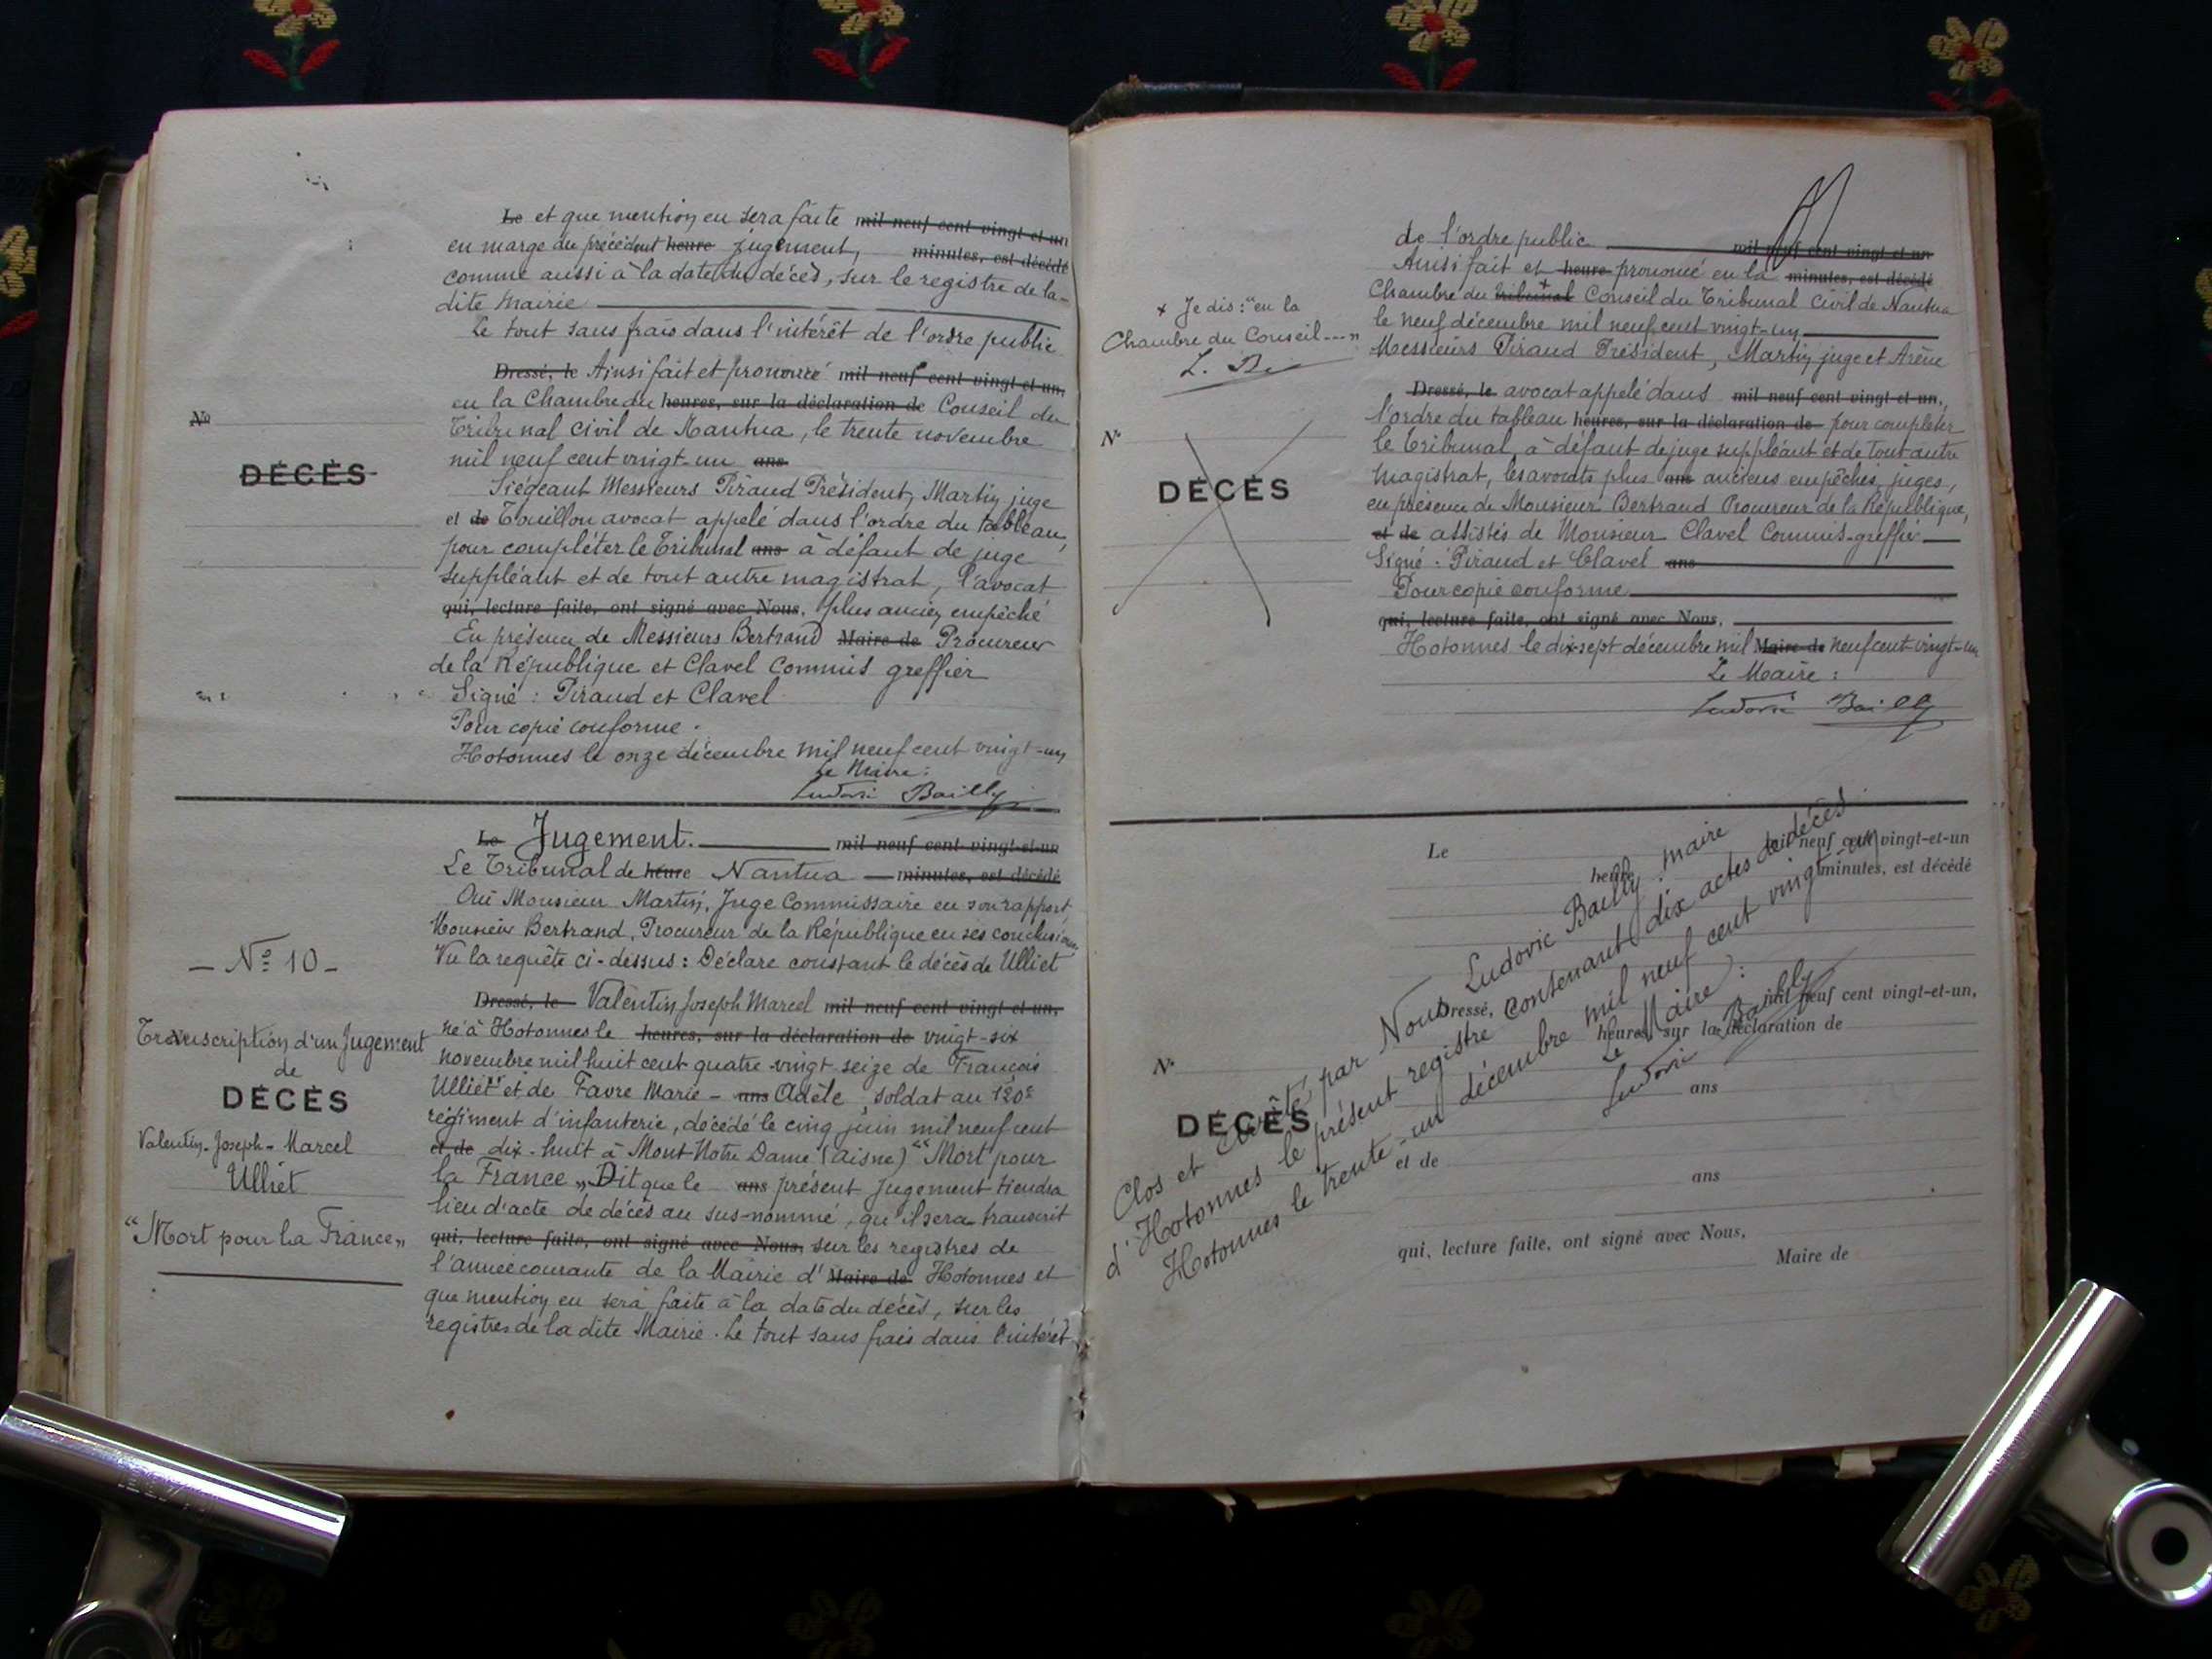 Le et que mention en sera faite mil neuf cent vingt-et-un
en marge du précédent heure jugement, minutes, est décédé
comme aussi à la date du décès, sur le registre de la-
dite Mairie
Le tout sans frais dans l'intérêt de l'ordre public
Dressé, le Ainsi fait et prononcé mil neuf cent vingt-et-un,
en la Chambre du heures, sur la déclaration de Conseil du
Tribunal civil de Nantua, le trente novembre
mil neuf cent vingt-un ans
Siégeant Messieurs Piraud Président, Martin juge
et de Touillon avocat appelé dans l'ordre du tableau,
pour compléter le Tribunal ans à défaut de juge
suppléant et de tout autre magistrat, l'avocat
qui, lecture faite, ont signé avec Nous, plus ancien empêché
En présence de Messieurs Bertrand Maire de Procureur
de la République et Clavel Commis greffier
Signé : Piraud et Clavel
Pour copie conforme.
Hotonnes le onze décembre mil neuf cent vingt-un
Le Maire :
Ludovic Bailly
No
DÉCÈS
— No 10 —
Transcription d'un Jugement
de
DÉCÈS
Valentin-Joseph-Marcel
Ulliet
"Mort pour la France"
Le Jugement. mil neuf cent vingt-et-un
Le Tribunal de heure Nantua — minutes, est décédé
Ouï Monsieur Martin, Juge Commissaire en son rapport,
Monsieur Bertrand, Procureur de la République en ses conclusions,
Vu la requête ci-dessus : Déclare constant le décès de Ulliet
Dressé, le Valentin Joseph Marcel mil neuf cent vingt-et-un,
né à Hotonnes le heures, sur la déclaration de vingt-six
novembre mil huit cent quatre-vingt-seize de François
Ulliet et de Favre Marie - ans Adèle, soldat au 120e
régiment d'infanterie, décédé le cinq juin mil neuf cent
et de dix-huit à Mont Notre Dame (Aisne) "Mort pour
la France" Dit que le ans présent Jugement tiendra
lieu d'acte de décès au sus-nommé, qu'il sera transcrit
qui, lecture faite, ont signé avec Nous, sur les registres de
l'année courante de la Mairie d' Maire de Hotonnes et
que mention en sera faite à la date du décès, sur les
registres de la dite Mairie. Le tout sans frais dans l'intérêt
de l'ordre public mil neuf cent vingt-et-un
Ainsi fait et heure prononcé en la minutes, est décédé
Chambre du tribunal + Conseil du Tribunal Civil de Nantua
le neuf décembre mil neuf cent vingt-un
Messieurs Piraud Président, Martin juge et Arène
Dressé, le avocat appelé dans mil neuf cent vingt-et-un,
l'ordre du tableau heures, sur la déclaration de pour compléter
le Tribunal, à défaut de juge suppléant et de tout autre
magistrat, les avocats plus ans anciens empêchés, juges,
en présence de Monsieur Bertrand Procureur de la République,
et de assistés de Monsieur Clavel Commis-greffier
Signé : Piraud et Clavel ans
Pour copie conforme
qui, lecture faite, ont signé avec Nous,
Hotonnes le dix-sept décembre mil Maire de neuf cent vingt-un
Le Maire :
Ludovic Bailly
+ Je dis : "en la
Chambre du Conseil ---"
L. B.
No
DÉCÈS
Le mil neuf cent vingt-et-un
heure minutes, est décédé
Dressé, mil neuf cent vingt-et-un,
heures, sur la déclaration de
ans
et de
ans
qui, lecture faite, ont signé avec Nous,
Maire de
No
DÉCÈS
Clos et arrêté par Nous Ludovic Bailly maire
d'Hotonnes le présent registre contenant dix actes de décès
Hotonnes le trente-un décembre mil neuf cent vingt-un
Le Maire :
Ludovic Bailly